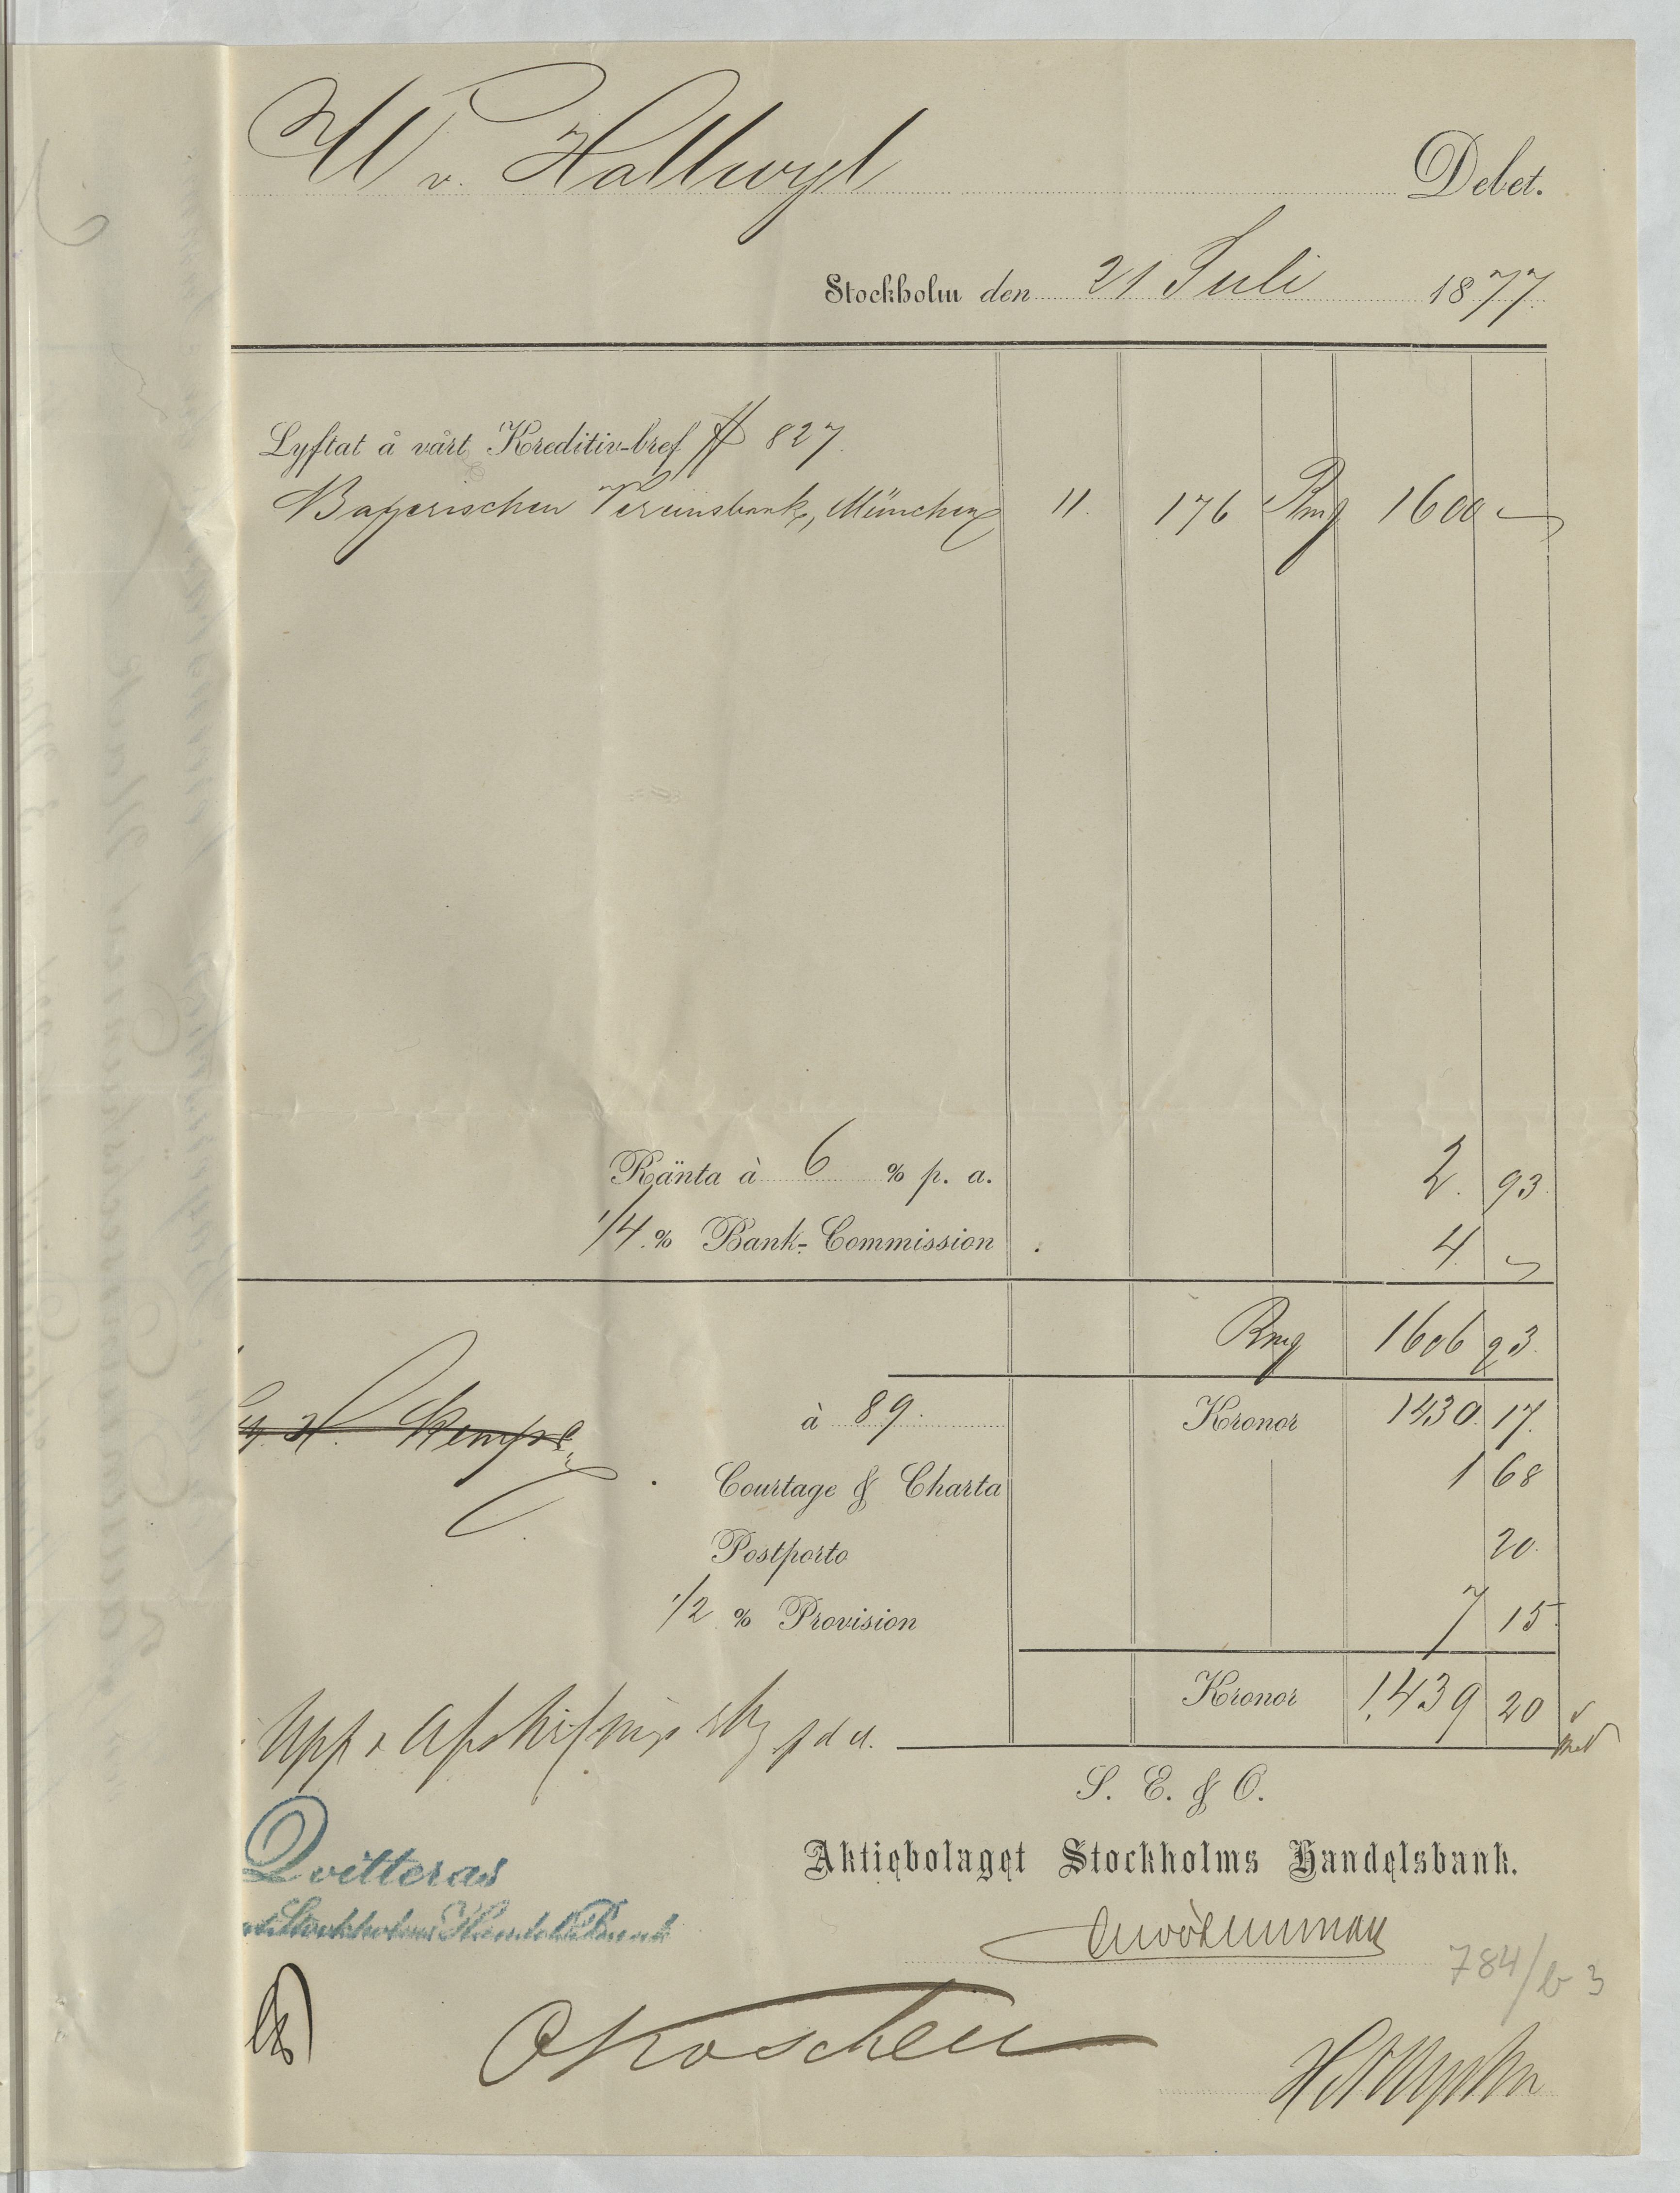 W v. Hallwyl Debet.
Stockholm den 21 Juli 1877.
Lyftat å vårt Kreditiv-bref № 827.
Bayerischen Vereinsbank, München 11. 176 Rmg 1600 —
Ränta à 6 % p. a. 2. 93.
1/4 % Bank-Commission 4 —
Rmg 1606 93.
à 89. Kronor 1430. 17.
H. Kempe
Courtage & Charta 1 68
Postporto 20.
1/2 % Provision 7 15
Kronor 1,439 20
Upp & Afskrifnings
S. E. & O.
Qvitteras
Aktiebolaget Stockholms Handelsbank.
Stockholms Handels Bank
784/b 3